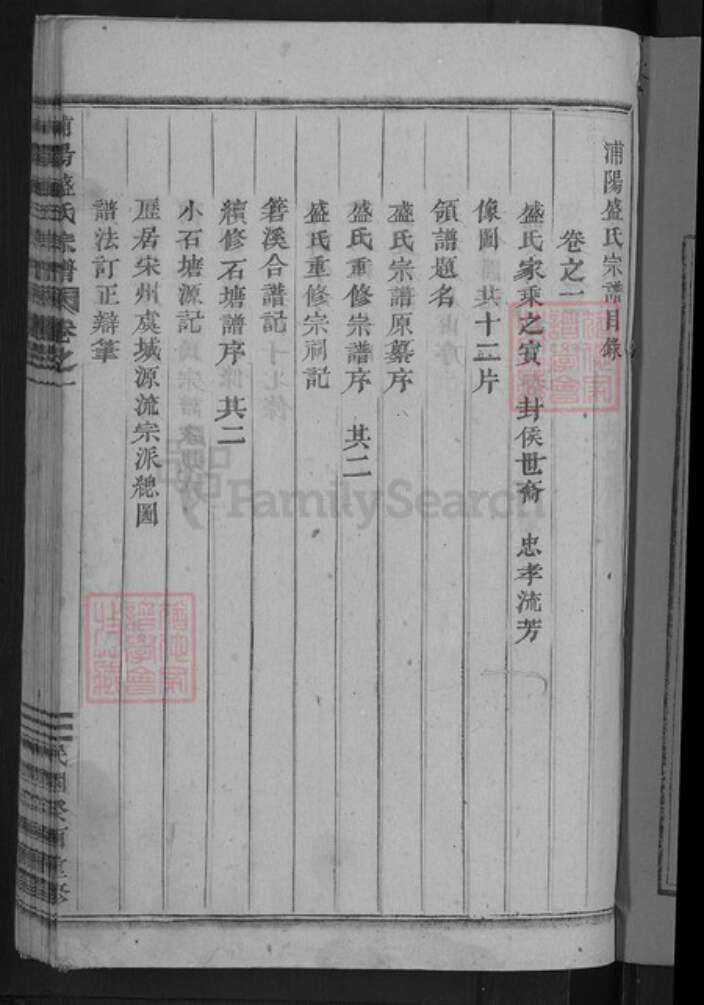 浦陽盛氏宗譜目錄
卷之一
盛氏家乘之寶 封侯世裔 忠孝流芳
像圖共十二片
領譜題名
盛氏宗譜原纂序
盛氏重修宗譜序 其二
盛氏重修宗祠記
箬溪合譜記
續修石塘譜序 其二
小石塘源記
歷居宋州虞城源流宗派總圖
譜法訂正辯筆
浦陽盛氏宗譜 卷之一
民國癸酉重修
FamilySearch